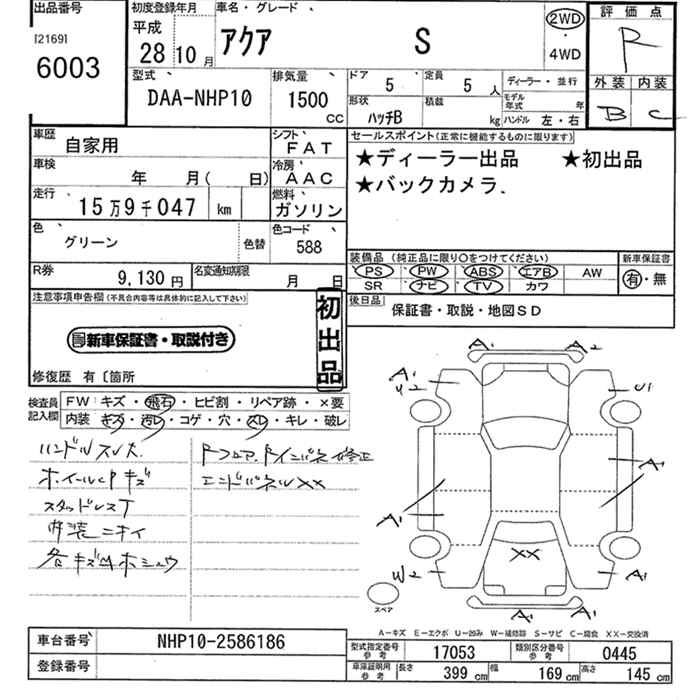 出品番号 初度登録年月 車名・グレード
[2169] 6003
平成 28 10月 アクア S 2WD・4WD
評価点 R
外装 内装
B C
型式 排気量 ドア 定員 ディーラー・並行
DAA-NHP10 1500 CC 5 5人 モデル年式 年
形状 ハッチB 積載 kg ハンドル 左・右
車歴 自家用 シフト FAT
車検 年 月( 日) 冷房 AAC
走行 15万9千047 km 燃料 ガソリン
色 グリーン 色替 色コード 588
R券 9,130円 名変通知期限 月 日
セールスポイント(正常に機能するものに限ります)
★ディーラー出品 ★初出品
★バックカメラ.
装備品(純正品に限り○をつけてください) 新車保証書
PS PW ABS エアB AW 有・無
SR ナビ TV カワ
後日品 保証書・取説・地図SD
注意事項申告欄(不具合内容等は具体的に記入して下さい)
新車保証書・取説付き
初出品
修復歴 有〔箇所
検査員記入欄 FW:キズ・飛石・ヒビ割・リペア跡・×要
内装:キズ・汚レ・コゲ・穴・スレ・キレ・破レ
ハンドルスレ大
ホイールCPキズ
スタッドレスT
内装ニオイ
各キズ凹ホシュウ
Rフロア、Rインパネ修正
エンドパネルXX
A1 A2
A1 U2 U1
A1
A1
XX
W2 A1
A1 A1
スペア
A-キズ E-エクボ U-凹み W-補修跡 S-サビ C-腐食 XX-交換済
車台番号 NHP10-2586186
登録番号
型式指定番号 参考 17053 類別区分番号 参考 0445
車庫証明用 参考 長さ 399cm 幅 169cm 高さ 145cm